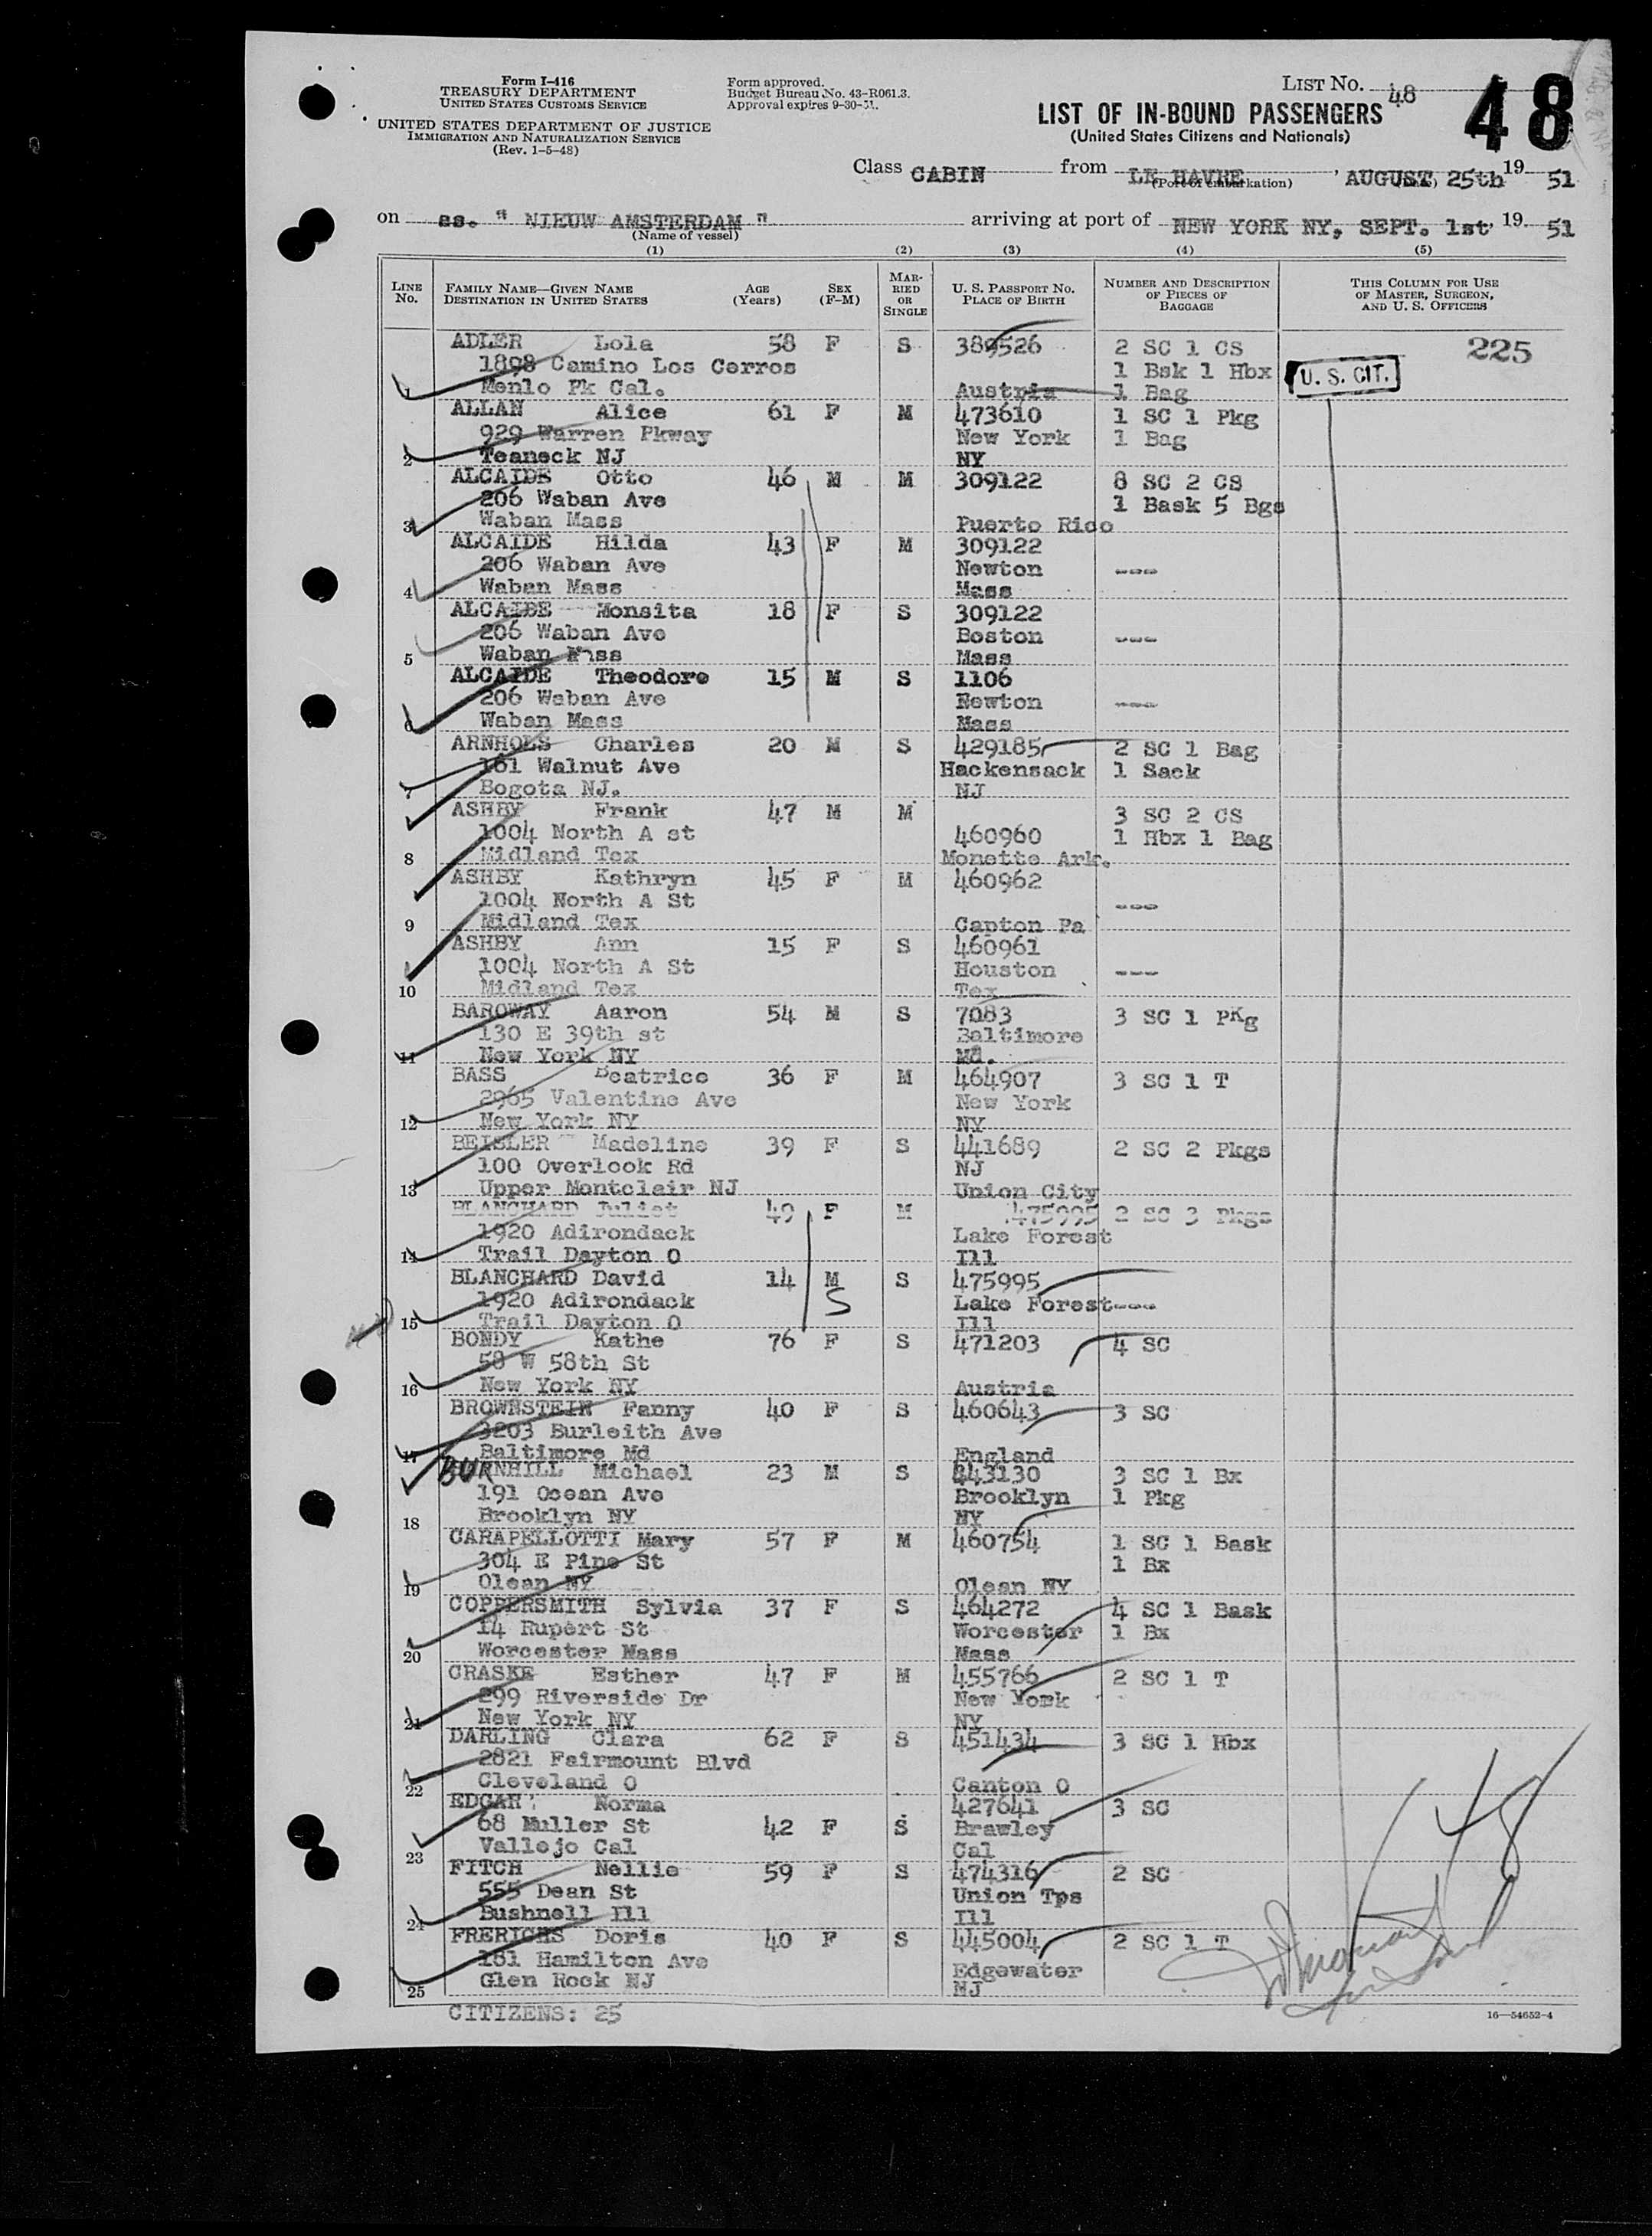 Form I-416
TREASURY DEPARTMENT
UNITED STATES CUSTOMS SERVICE
UNITED STATES DEPARTMENT OF JUSTICE
IMMIGRATION AND NATURALIZATION SERVICE
(Rev. 1-5-48)
Form approved.
Budget Bureau No. 43-R061.3.
Approval expires 9-30-51.
LIST No. 48
48
LIST OF IN-BOUND PASSENGERS
(United States Citizens and Nationals)
Class CABIN from LE HAVRE, AUGUST 25th 19 51
(Port of embarkation)
on ss. " NIEUW AMSTERDAM " arriving at port of NEW YORK NY, SEPT. 1st, 19 51
(Name of vessel)
(1) (2) (3) (4) (5)
LINE No. FAMILY NAME—GIVEN NAME DESTINATION IN UNITED STATES AGE (Years) SEX (F-M) MARRIED OR SINGLE U. S. PASSPORT NO. PLACE OF BIRTH NUMBER AND DESCRIPTION OF PIECES OF BAGGAGE THIS COLUMN FOR USE OF MASTER, SURGEON, AND U. S. OFFICERS
ADLER Lola 58 F S 389526 2 SC 1 CS 225
1898 Camino Los Cerros 1 Bsk 1 Hbx U. S. CIT.
1 Menlo Pk Cal. Austria 1 Bag
ALLAN Alice 61 F M 473610 1 SC 1 Pkg
929 Warren Pkway New York 1 Bag
2 Teaneck NJ NY
ALCAIDE Otto 46 M M 309122 8 SC 2 CS
206 Waban Ave 1 Bask 5 Bgs
3 Waban Mass Puerto Rico
ALCAIDE Hilda 43 F M 309122
206 Waban Ave Newton ---
4 Waban Mass Mass
ALCAIDE Monsita 18 F S 309122
206 Waban Ave Boston ---
5 Waban Mass Mass
ALCAIDE Theodore 15 M S 1106
206 Waban Ave Newton ---
6 Waban Mass Mass
ARNHOLS Charles 20 M S 429185 2 SC 1 Bag
161 Walnut Ave Hackensack 1 Sack
7 Bogota NJ. NJ
ASHBY Frank 47 M M 3 SC 2 CS
1004 North A st 460960 1 Hbx 1 Bag
8 Midland Tex Monette Ark.
ASHBY Kathryn 45 F M 460962
1004 North A St ---
9 Midland Tex Canton Pa
ASHBY Ann 15 F S 460961
1004 North A St Houston ---
10 Midland Tex Tex
BAROWAY Aaron 54 M S 7083 3 SC 1 PKg
130 E 39th st Baltimore
11 New York NY Md.
BASS Beatrice 36 F M 464907 3 SC 1 T
2965 Valentine Ave New York
12 New York NY NY
BEISLER Madeline 39 F S 441689 2 SC 2 Pkgs
100 Overlook Rd NJ
13 Upper Montclair NJ Union City
BLANCHARD Juliet 49 F M 475995 2 SC 3 Pkgs
1920 Adirondack Lake Forest
14 Trail Dayton O Ill
BLANCHARD David 14 M S 475995
1920 Adirondack S Lake Forest ---
15 Trail Dayton O Ill
BONDY Kathe 76 F S 471203 4 SC
58 W 58th St
16 New York NY Austria
BROWNSTEIN Fanny 40 F S 460643 3 SC
3203 Burleith Ave
17 Baltimore Md England
BURNHILL Michael 23 M S 443130 3 SC 1 Bx
191 Ocean Ave Brooklyn 1 Pkg
18 Brooklyn NY NY
CARAPELLOTTI Mary 57 F M 460754 1 SC 1 Bask
304 E Pine St 1 Bx
19 Olean NY Olean NY
COPPERSMITH Sylvia 37 F S 464272 4 SC 1 Bask
14 Rupert St Worcester 1 Bx
20 Worcester Mass Mass
CRASKE Esther 47 F M 455766 2 SC 1 T
299 Riverside Dr New York
21 New York NY NY
DARLING Clara 62 F S 451434 3 SC 1 Hbx
2821 Fairmount Blvd
22 Cleveland O Canton O
EDGAR Norma 427641 3 SC
68 Muller St 42 F S Brawley
23 Vallejo Cal Cal
FITCH Nellie 59 F S 474316 2 SC
555 Dean St Union Tps
24 Bushnell Ill Ill
FRERICHS Doris 40 F S 445004 2 SC 1 T
181 Hamilton Ave Edgewater
25 Glen Rock NJ NJ
CITIZENS: 25
16—54652-4